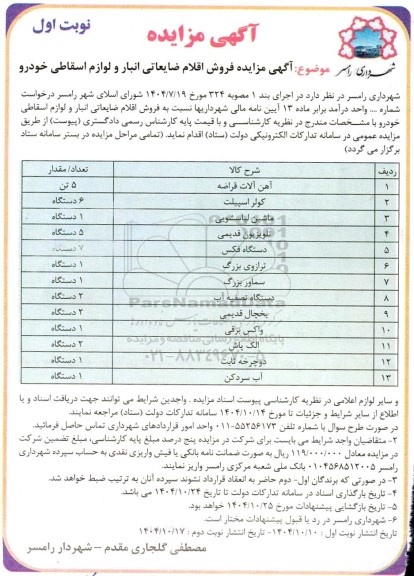 نوبت اول
آگهی مزایده
شهرداری رامسر
موضوع: آگهی مزایده فروش اقلام ضایعاتی انبار و لوازم اسقاطی خودرو
شهرداری رامسر در نظر دارد در اجرای بند ۱ مصوبه ۳۲۴ مورخ ۱۴۰۴/۷/۱۹ شورای اسلای شهر رامسر درخواست
شماره .... واحد درآمد برابر ماده ۱۳ آیین نامه مالی شهرداریها نسبت به فروش اقلام ضایعاتی انبار و لوازم اسقاطی
خودرو با مشخصات مندرج در نظریه کارشناسی و با قیمت پایه کارشناس رسمی دادگستری (پیوست) از طریق
مزایده عمومی در سامانه تدارکات الکترونیکی دولت (ستاد) اقدام نماید. (تمامی مراحل مزایده در بستر سامانه ستاد
برگزار می گردد)
ردیف شرح کالا تعداد/ مقدار
۱ آهن آلات قراضه ۵ تن
۲ کولر اسپیلت ۶ دستگاه
۳ ماشین لباسشویی ۱ دستگاه
۴ تلویزیون قدیمی ۵ دستگاه
۵ دستگاه فکس ۷ دستگاه
۶ ترازوی بزرگ ۱ دستگاه
۷ سماور بزرگ ۱ دستگاه
۸ دستگاه تصفیه آب ۲ دستگاه
۹ یخچال قدیمی ۲ دستگاه
۱۰ واکس برقی ۱ دستگاه
۱۱ الک پاش ۲ دستگاه
۱۲ دوچرخه ثابت ۱ دستگاه
۱۳ آب سردکن ۱ دستگاه
ParsNamadData
پایگاه اطلاع رسانی مناقصه و مزایده
۰۲۱-۸۸۳۴۹۶۷۰-۵
و سایر لوازم اعلامی در نظریه کارشناسی پیوست اسناد مزایده . واجدین شرایط می توانند جهت دریافت اسناد و یا
اطلاع از سایر شرایط و جزئیات تا مورخ ۱۴۰۴/۱۰/۱۴ سامانه تدارکات دولت (ستاد) مراجعه نمایند.
در صورت طرح سوال با شماره تلفن ۵۵۲۵۶۱۷۳-۰۱۱ واحد امور قراردادهای شهرداری تماس حاصل فرمائید.
۲- متقاضیان واجد شرایط می بایست برای شرکت در مزایده پنج درصد مبلغ پایه کارشناسی، مبلغ تضمین شرکت
در مزایده معادل ۱۱۹/۰۰۰/۰۰۰ ریال به صورت ضمانت نامه بانکی یا فیش واریزی نقدی به حساب سپرده شهرداری
رامسر ۰۱۰۴۵۶۸۵۱۲۰۰۵ بانک ملی شعبه مرکزی رامسر واریز نمایند.
۳- در صورتی که برندگان اول- دوم حاضر به انعقاد قرارداد نشوند سپرده آنان به ترتیب ضبط خواهد شد.
۴- تاریخ بارگذاری اسناد در سامانه تدارکات دولت تا تاریخ ۱۴۰۴/۱۰/۲۴ می باشد.
۵- تاریخ بازگشایی پیشنهادات مورخ ۱۴۰۴/۱۰/۲۵ خواهد بود.
۶- شهرداری رامسر در رد یا قبول پیشنهادات مختار است.
۷- تاریخ انتشار نوبت اول : ۱۴۰۴/۱۰/۱۰- تاریخ انتشار نوبت دوم : ۱۴۰۴/۱۰/۱۷
مصطفی گلجاری مقدم – شهردار رامسر